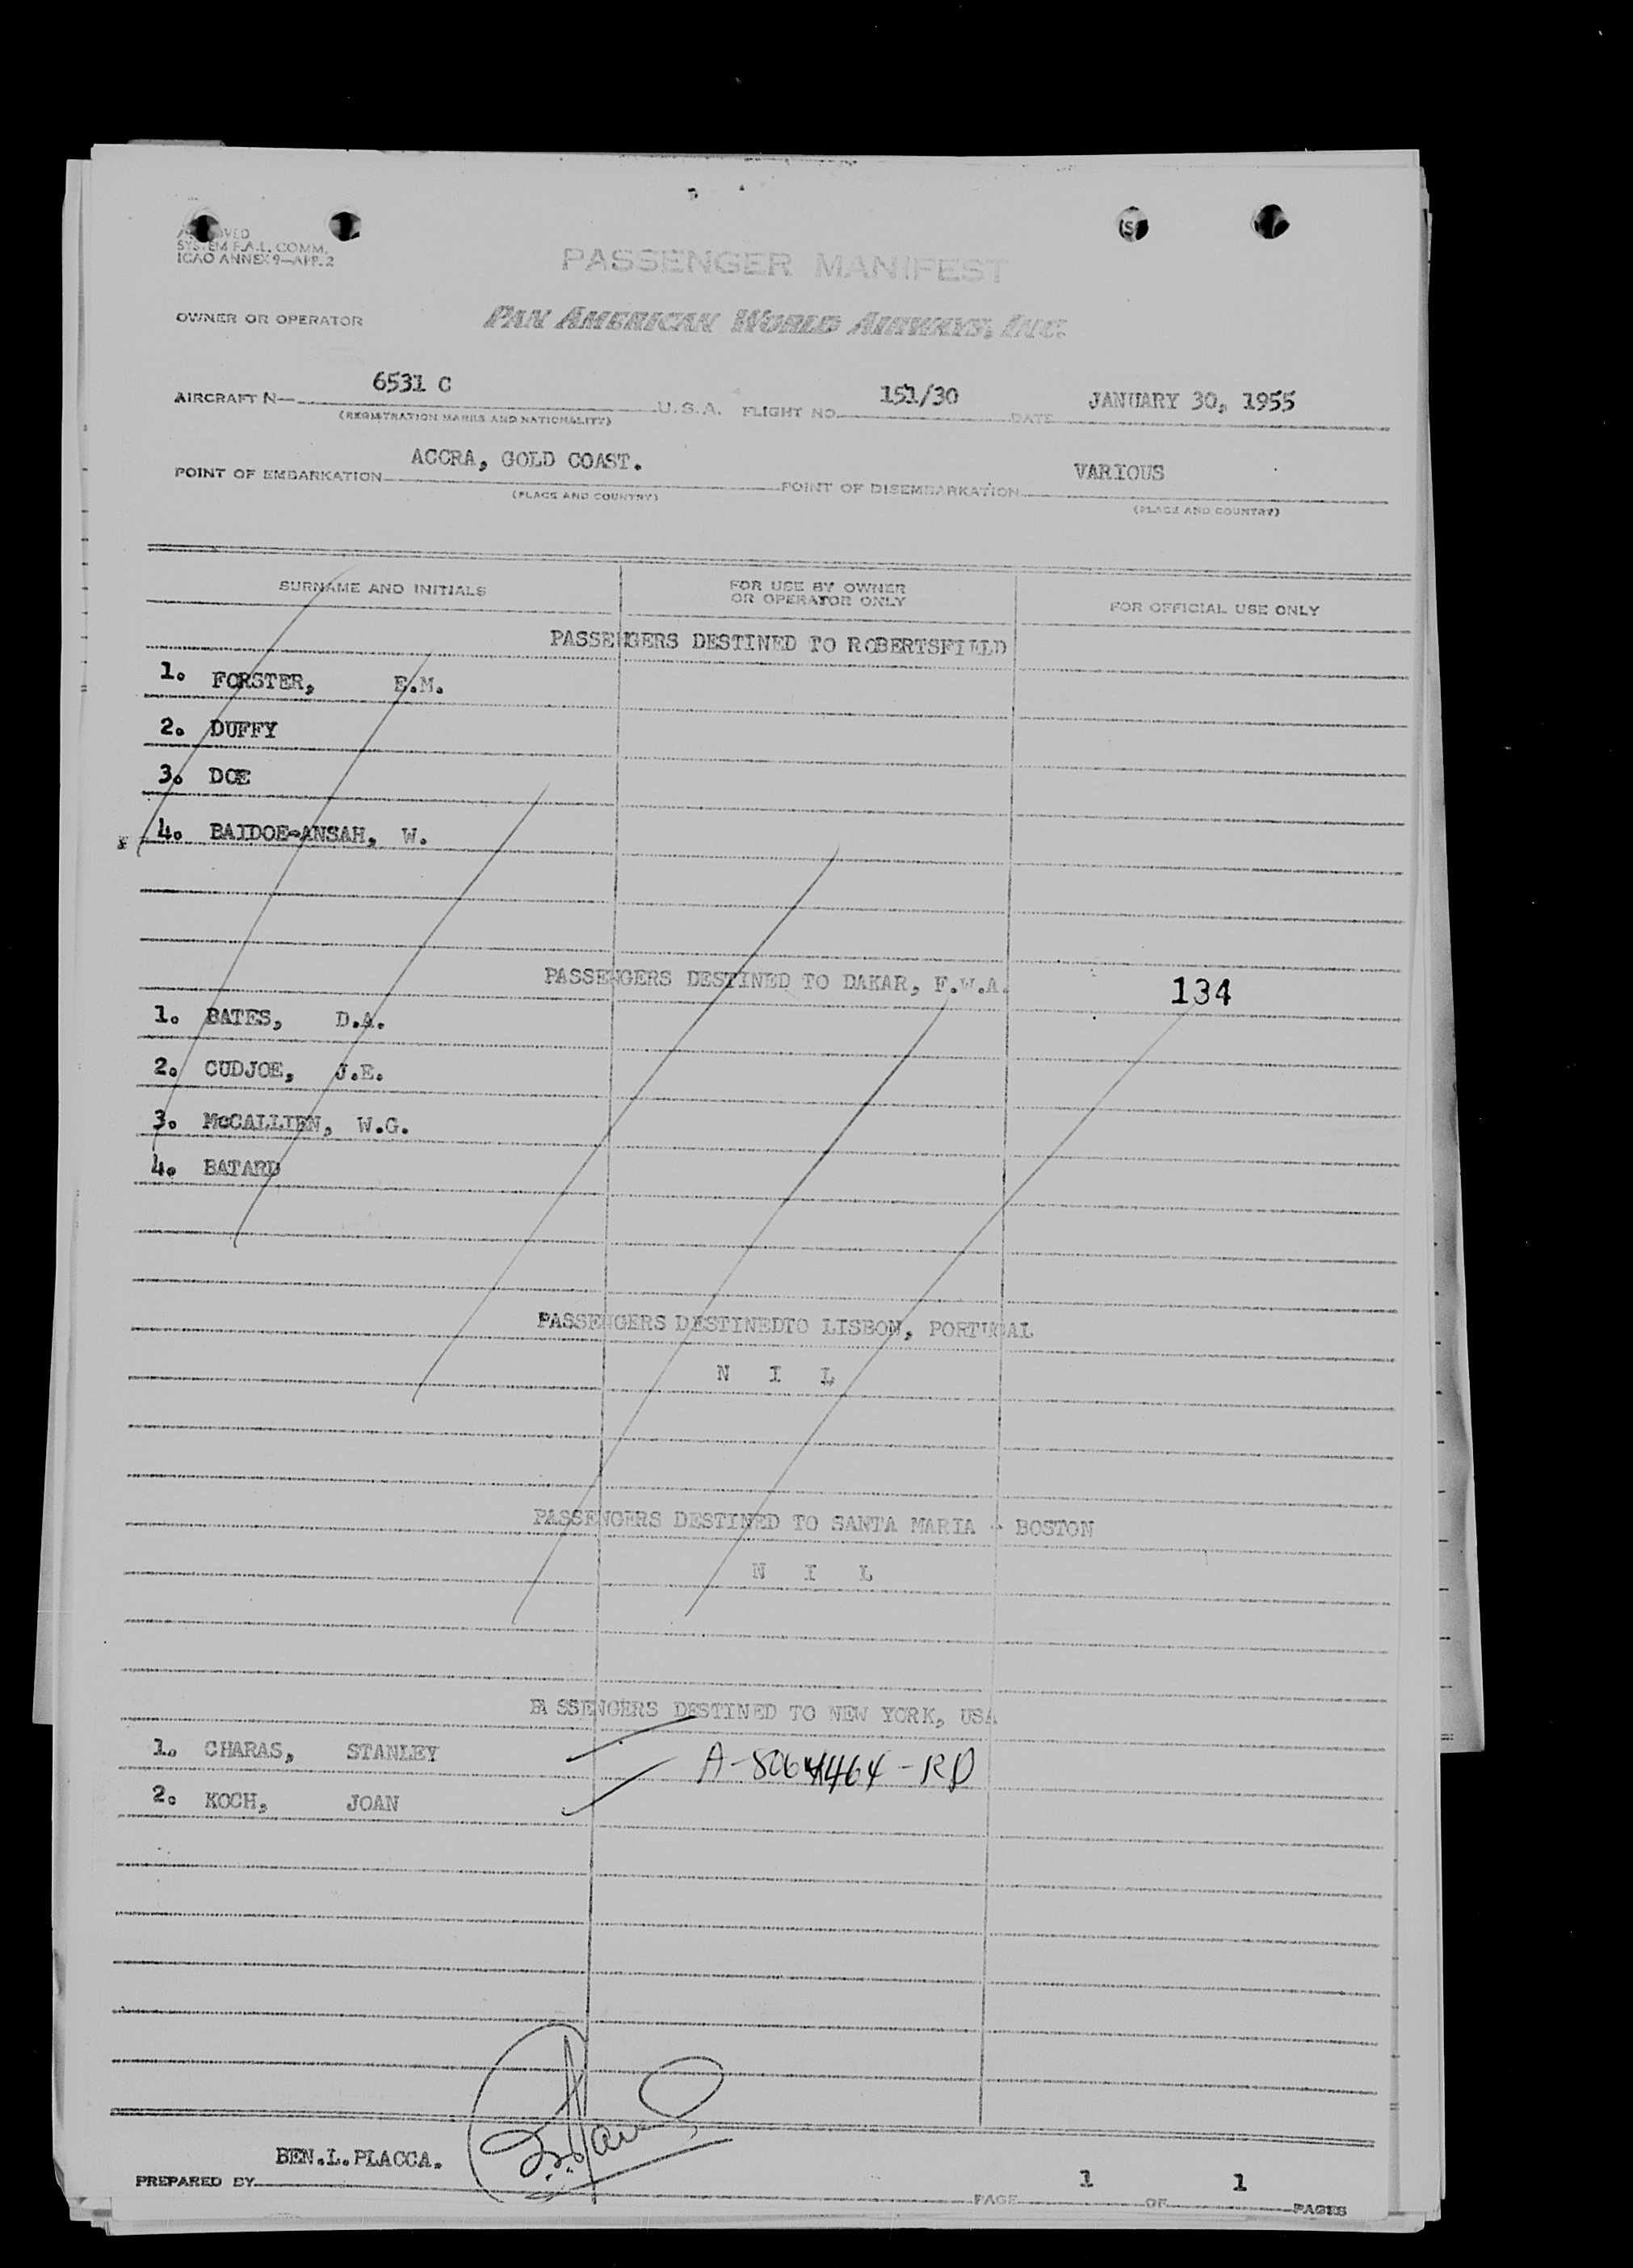 SYSTEM F.A.L. COMM.
ICAO ANNEX 9—APP. 2
PASSENGER MANIFEST
OWNER OR OPERATOR PAN AMERICAN WORLD AIRWAYS, INC.
AIRCRAFT N— 6531 C U.S.A. FLIGHT NO. 151/30 DATE JANUARY 30, 1955
(REGISTRATION MARKS AND NATIONALITY)
POINT OF EMBARKATION ACCRA, GOLD COAST. POINT OF DISEMBARKATION VARIOUS
(PLACE AND COUNTRY) (PLACE AND COUNTRY)
SURNAME AND INITIALS FOR USE BY OWNER OR OPERATOR ONLY FOR OFFICIAL USE ONLY
PASSENGERS DESTINED TO ROBERTSFIELD
1. FORSTER, E.M.
2. DUFFY
3. DOE
4. BAIDOE-ANSAH, W.
PASSENGERS DESTINED TO DAKAR, F.W.A. 134
1. BATES, D.A.
2. CUDJOE, J.E.
3. McCALLIEN, W.G.
4. BATARD
PASSENGERS DESTINEDTO LISBON, PORTUGAL
N I L
PASSENGERS DESTINED TO SANTA MARIA - BOSTON
N I L
PASSENGERS DESTINED TO NEW YORK, USA
1. CHARAS, STANLEY
A-8064464-RP
2. KOCH, JOAN
BEN.L.PLACCA.
PREPARED BY PAGE 1 OF 1 PAGES